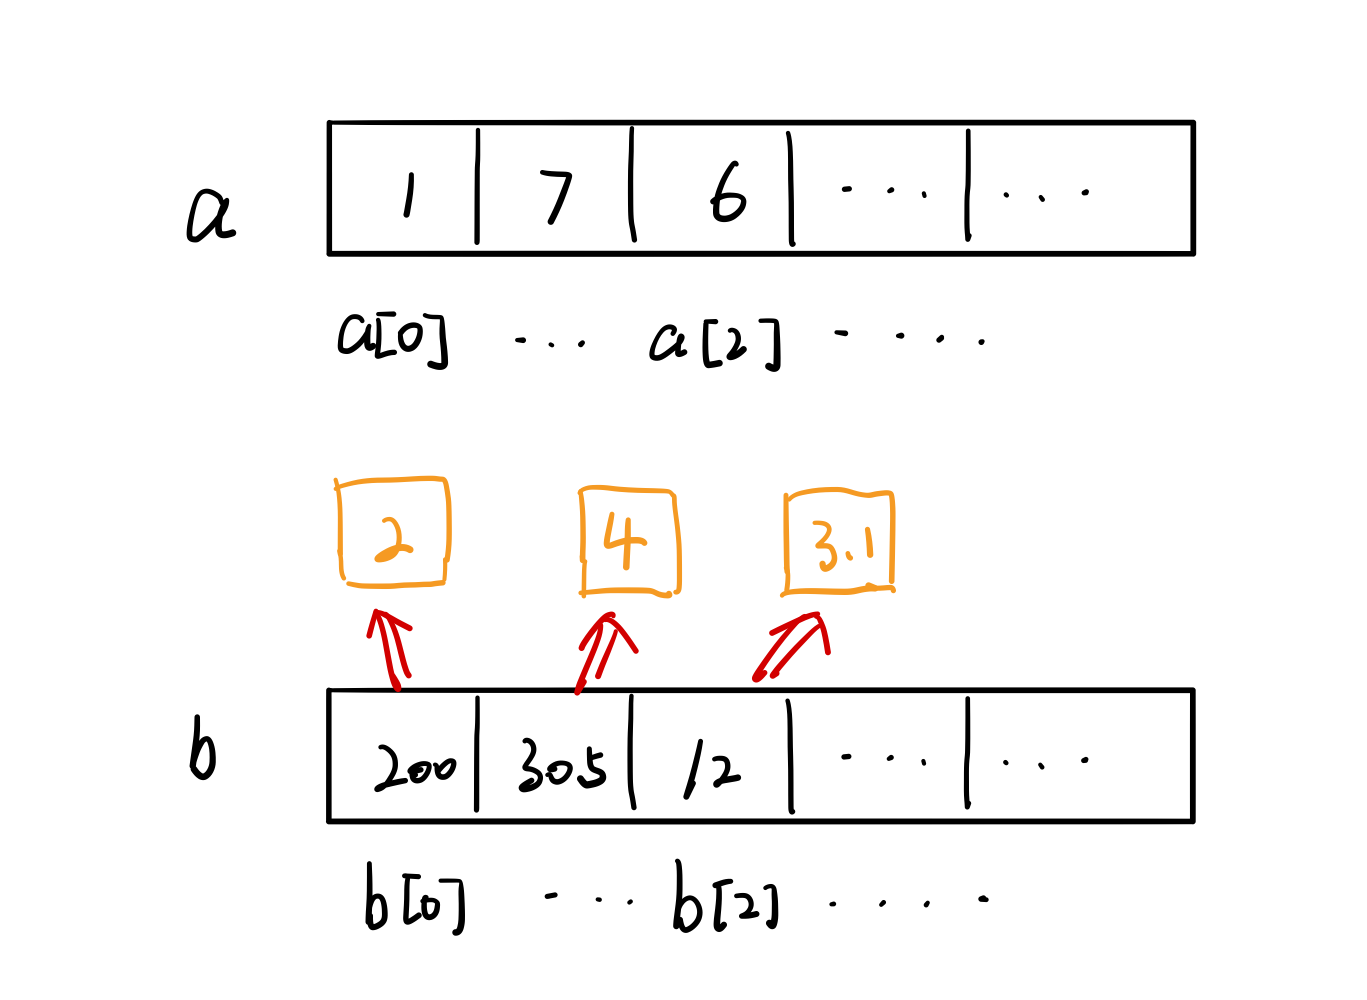 a 1 7 6 ... ...
a[0] ... a[2] ....
2 4 3.1
b 200 305 12 ... ...
b[0] ... b[2] ....